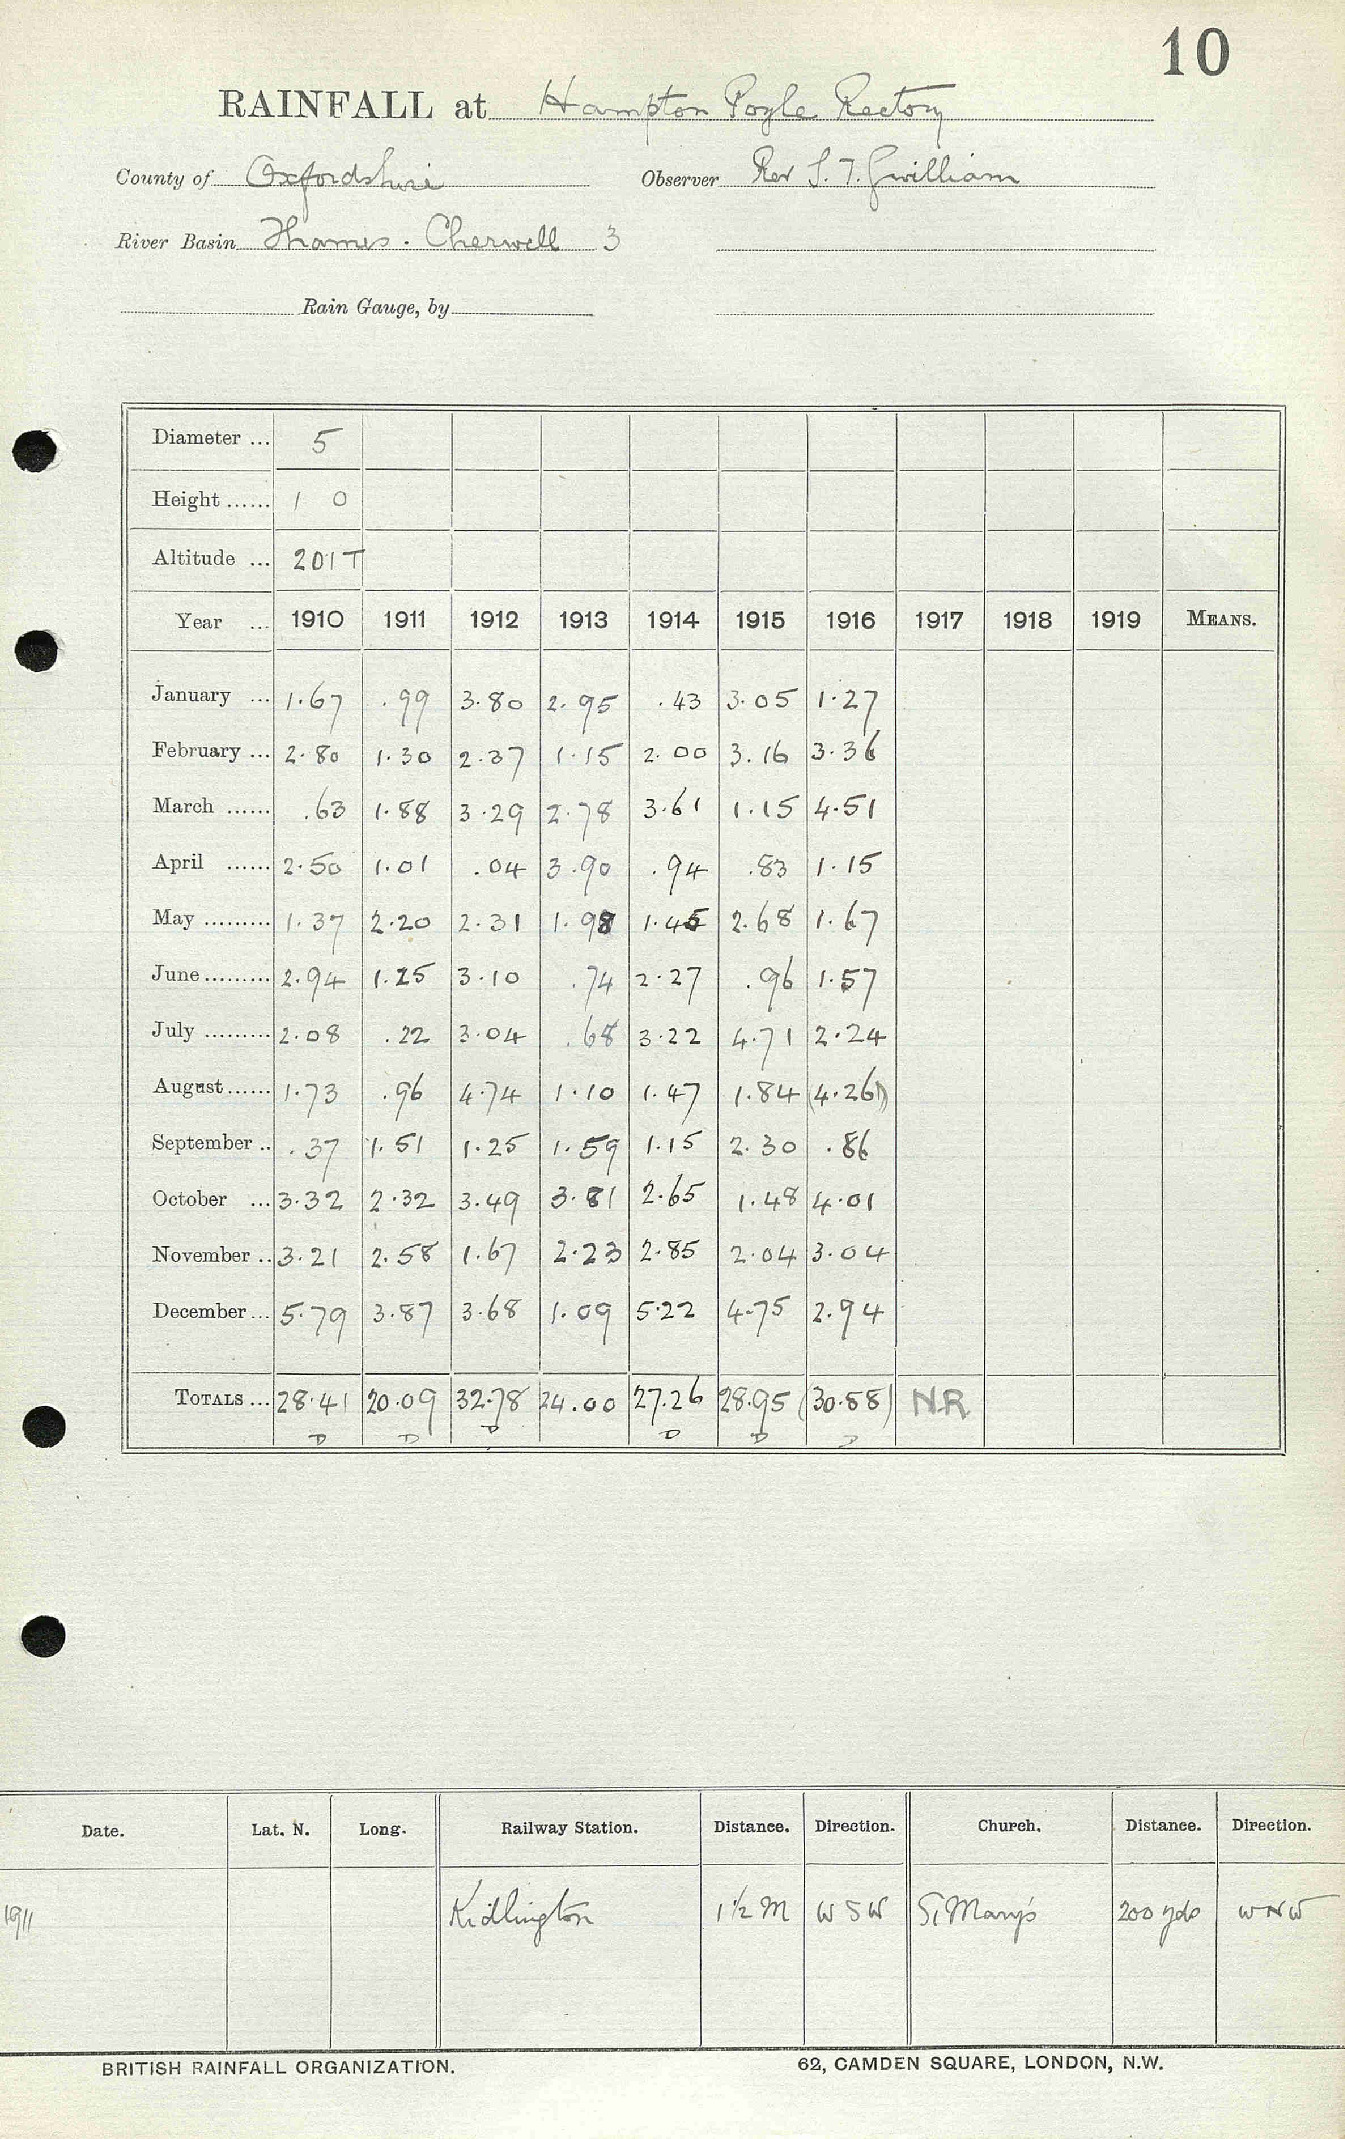 10
RAINFALL at Hampton Poyle Rectory
County of Oxfordshire Observer Rev S. T. Gwilliam
River Basin Thames . Cherwell 3
Rain Gauge, by
Diameter ... 5
Height ...... 1 0
Altitude ... 201 T
Year ... 1910 1911 1912 1913 1914 1915 1916 1917 1918 1919 MEANS.
January ... 1.67 .99 3.80 2.95 .43 3.05 1.27
February ... 2.80 1.30 2.37 1.15 2.00 3.16 3.36
March ...... .63 1.88 3.29 2.78 3.61 1.15 4.51
April ...... 2.50 1.01 .04 3.90 .94 .83 1.15
May ......... 1.37 2.20 2.31 1.98 1.45 2.68 1.67
June ......... 2.94 1.25 3.10 .74 2.27 .96 1.57
July ......... 2.08 .22 3.04 .68 3.22 4.71 2.24
August ...... 1.73 .96 4.74 1.10 1.47 1.84 (4.26)
September .. .37 1.51 1.25 1.59 1.15 2.30 .86
October ... 3.32 2.32 3.49 3.81 2.65 1.48 4.01
November .. 3.21 2.58 1.67 2.23 2.85 2.04 3.04
December ... 5.79 3.87 3.68 1.09 5.22 4.75 2.94
TOTALS ... 28.41 20.09 32.78 24.00 27.26 28.95 (30.88) N.R
D D D D D D
Date. Lat. N. Long. Railway Station. Distance. Direction. Church. Distance. Direction.
1911 Kidlington 1½ M W S W St Mary's 200 yds W N W
BRITISH RAINFALL ORGANIZATION. 62, CAMDEN SQUARE, LONDON, N.W.